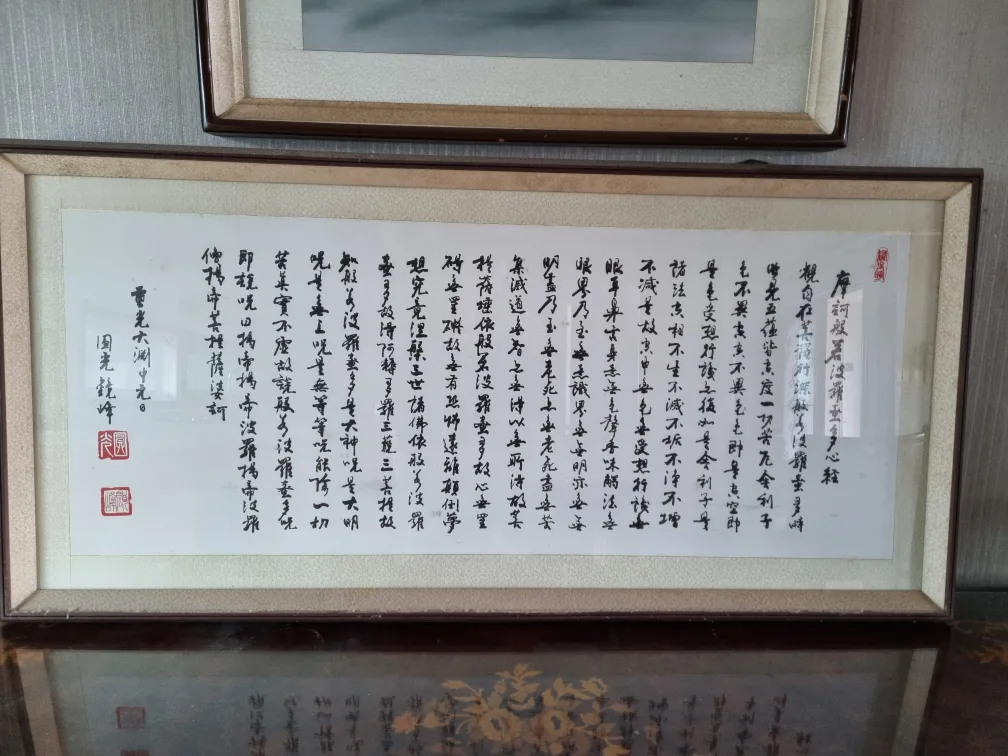 摩訶般若波羅蜜多心經
觀自在菩薩行深般若波羅蜜多時
照見五蘊皆空度一切苦厄舍利子
色不異空空不異色色即是空空即
是色受想行識亦復如是舍利子是
諸法空相不生不滅不垢不淨不增
不減是故空中無色無受想行識無
眼耳鼻舌身意無色聲香味觸法無
眼界乃至無意識界無無明亦無無
明盡乃至無老死亦無老死盡無苦
集滅道無智亦無得以無所得故菩
提薩埵依般若波羅蜜多故心無罣
礙無罣礙故無有恐怖遠離顛倒夢
想究竟涅槃三世諸佛依般若波羅
蜜多故得阿耨多羅三藐三菩提故
知般若波羅蜜多是大神呪是大明
呪是無上呪是無等等呪能除一切
苦真實不虛故說般若波羅蜜多呪
即說呪曰揭帝揭帝波羅揭帝波羅
僧揭帝菩提薩婆訶
重光大淵中元日
圓光鏡峰